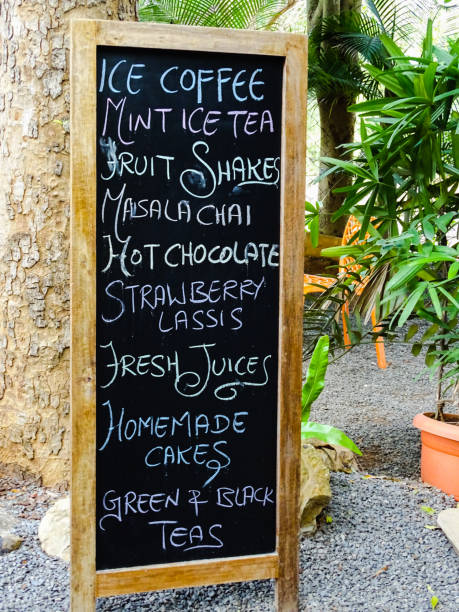 ICE COFFEE
MINT ICE TEA
FRUIT SHAKES
MASALA CHAI
HOT CHOCOLATE
STRAWBERRY
LASSIS
FRESH JUICES
HOMEMADE
CAKES
GREEN & BLACK
TEAS